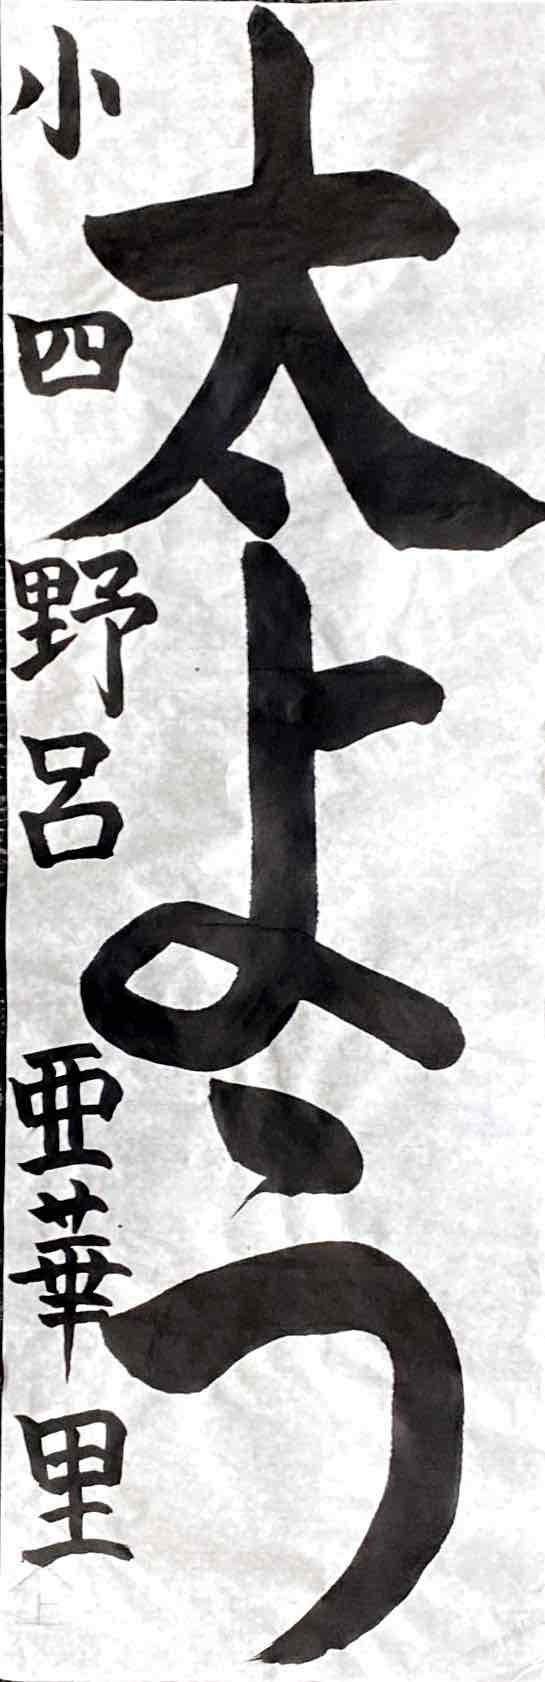 太よう
小四 野呂 亜華里
上